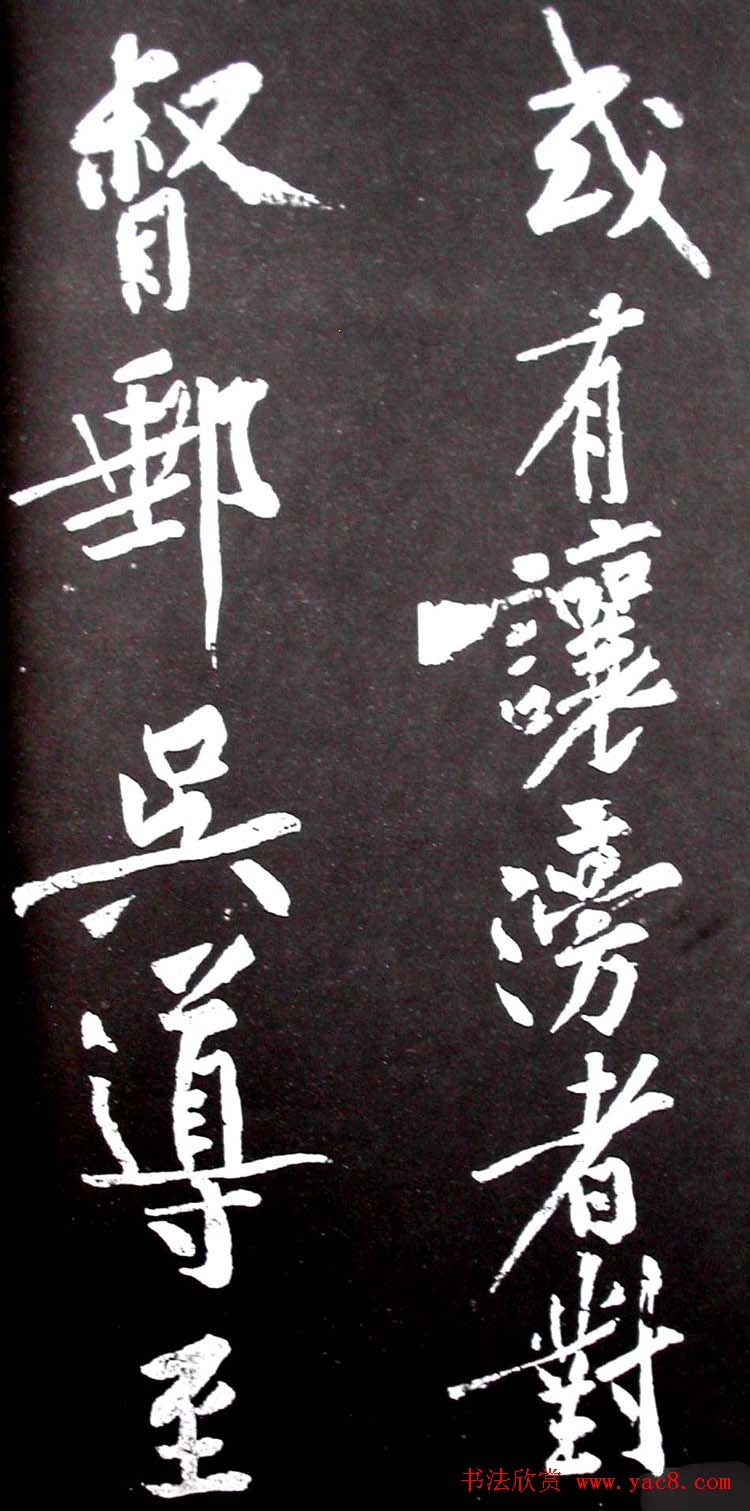 或有讓滂者對
督郵吳導至
书法欣赏 www.yac8.com